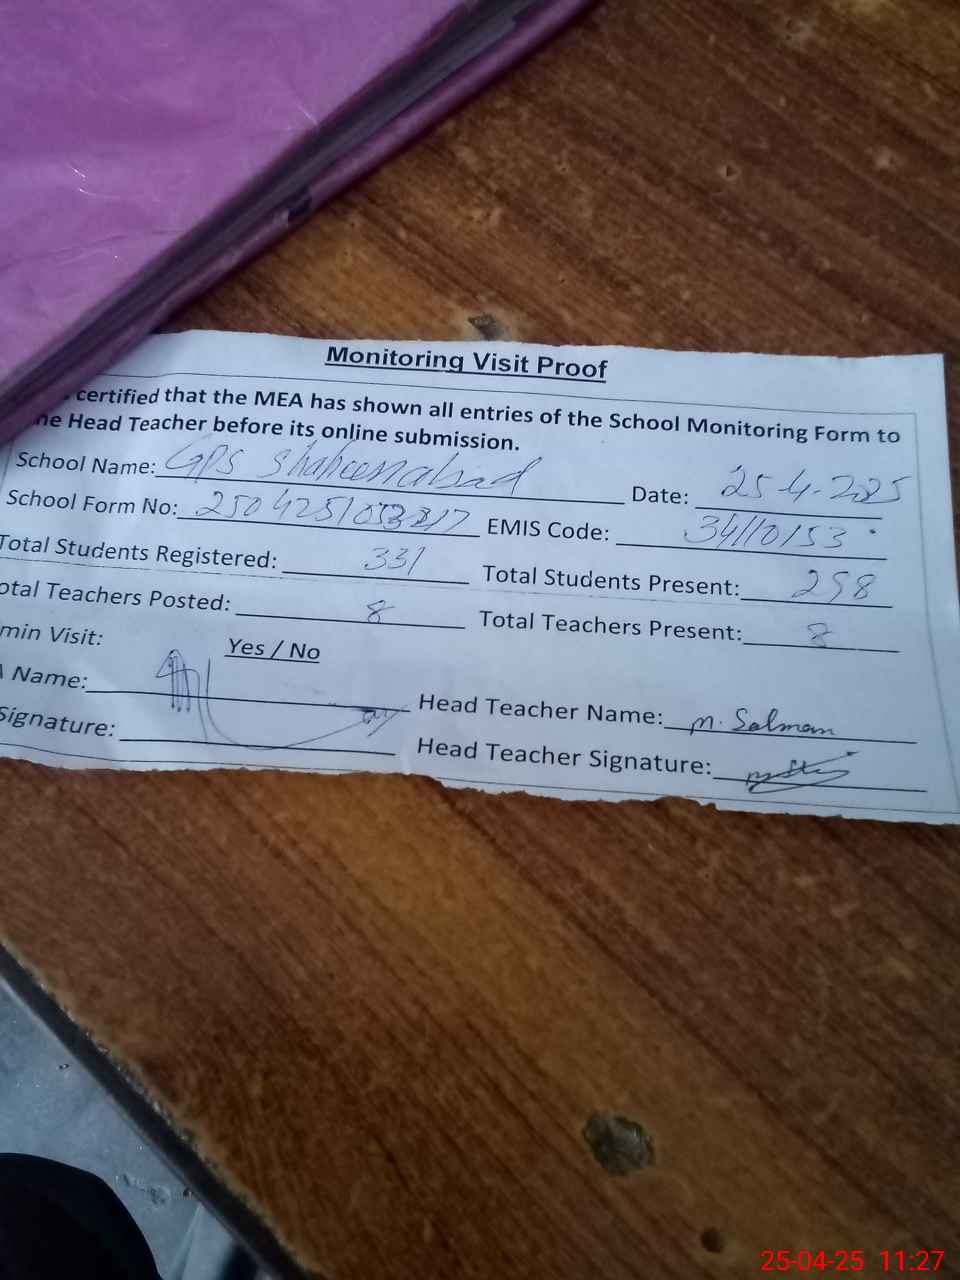 Monitoring Visit Proof
certified that the MEA has shown all entries of the School Monitoring Form to
he Head Teacher before its online submission.
School Name: GPS Shaheenabad Date: 25-4-2025
School Form No: EMIS Code: 34110153
Total Students Registered: 331 Total Students Present: 298
otal Teachers Posted: 8 Total Teachers Present: 8
min Visit: Yes / No
Name: Head Teacher Name: M. Salman
Signature: Head Teacher Signature:
25-04-25 11:27